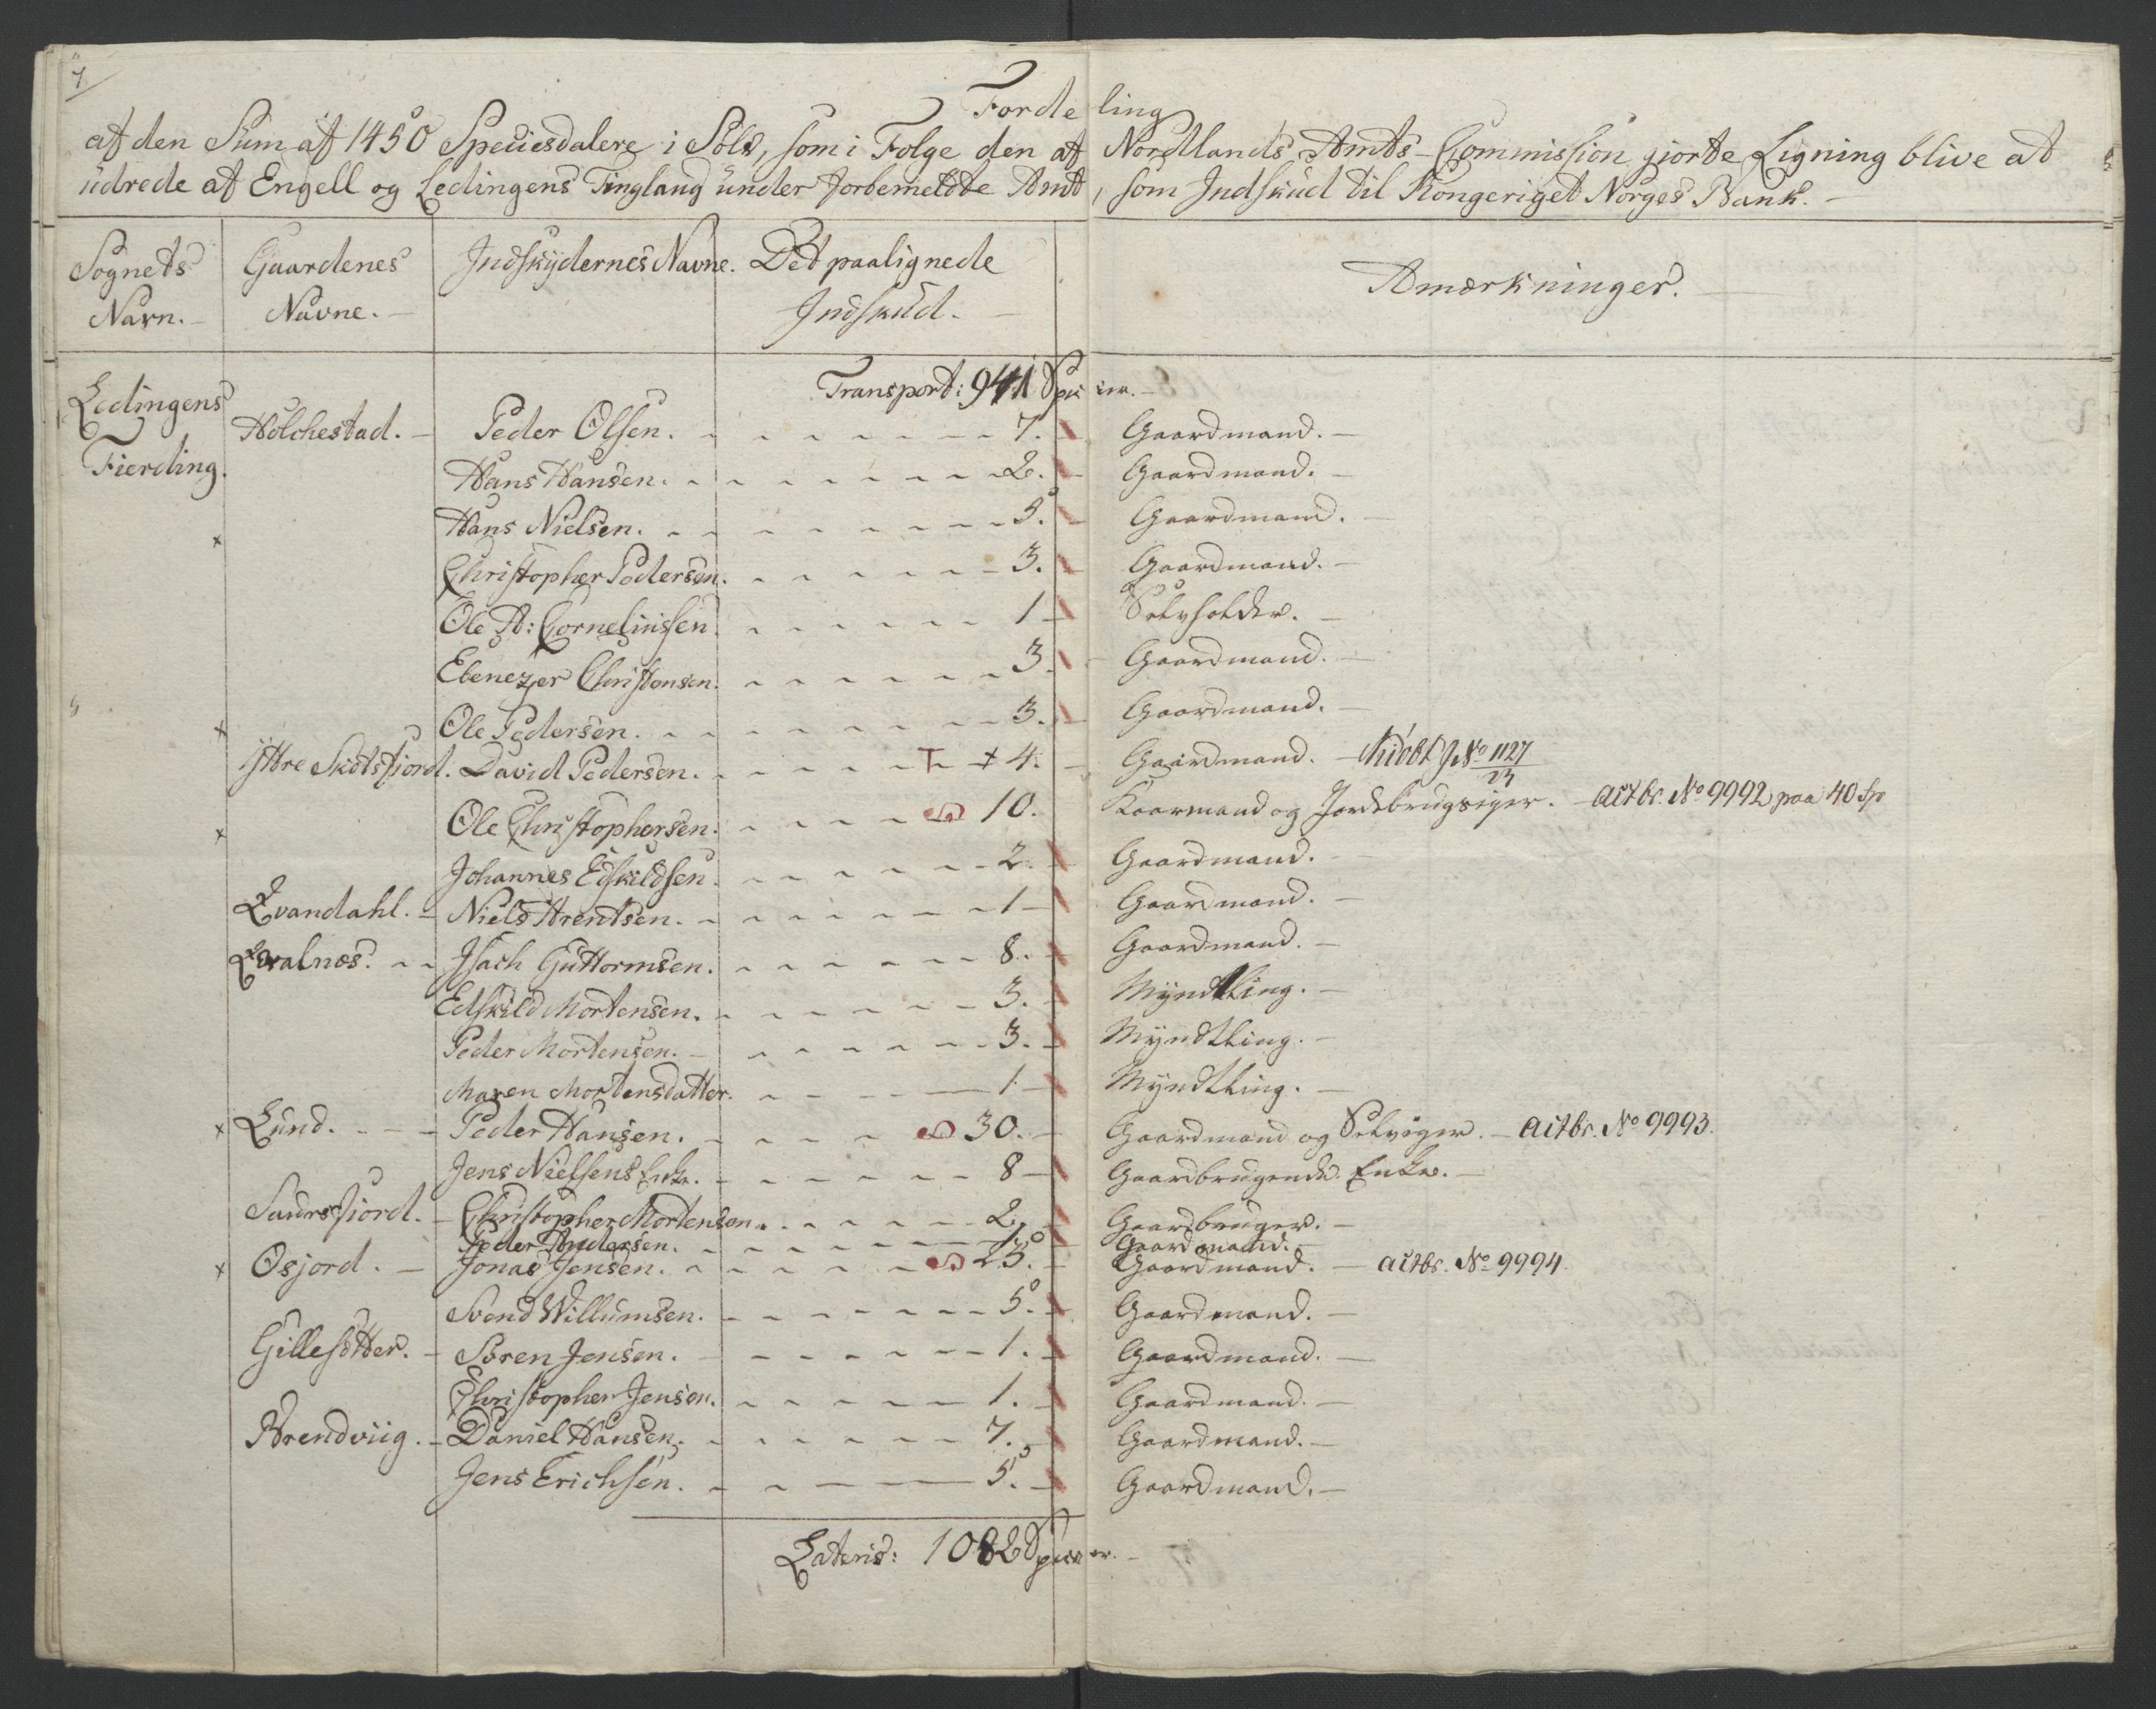 7
Fordeling
af den Sum af 1450 Speciesdalere i Sölv, som i Folge den af Nordlands Amts-Commission gjorte Ligning blive at
udrede af Engell og Ledingens Tinglaug under forbemeldte Amt, som Indskud til Kongeriget Norges Bank.
Sognets Navn. Gaardenes Navne. Indskydernes Navne. Det paalignede Indskud. Anmærkninger.
Transport: 941 Species.
Ledingens Fierding. Holchestad. Peder Olsen. 7. Gaardmand.
Hans Hansen. 2. Gaardmand.
Hans Nielsen. 5. Gaardmand.
x Christopher Pedersen. 3. Gaardmand.
Ole A: Corneliussen. 1 Selvholder.
Ebenezer Christensen. 3. Gaardmand.
x Ole Pedersen. 3. Gaardmand.
Ÿttre Skotsfiord. David Pedersen. T x 4. Gaardmand. No 1127
x Ole Christophersen. 10. Kaarmand og Jordebrugseiger. Actbr. No 9992 paa 40 Sp
Johannes Edskildsen. 2. Gaardmand.
Evandahl. Niels Arentsen. 1 Gaardmand.
Qvalnæs. Isach Guttormsen. 8. Gaardmand.
Edskild Mortensen. 3. Myndtling.
Peder Mortensen. 3. Myndtling.
Maren Mortensdatter. 1. Myndtling.
x Lund. Peder Hansen. 30. Gaardmand og Selveiger. Actbr. No 9993.
Jens Nielsens Enke. 8 Gaardbrugende Enke.
Saursfiord. Christopher Mortensen. 2. Gaardbruger.
Peder Andersen. 1. Gaardmand.
x Osjord. Jonas Jensen. 23. Gaardmand. Actbr. No 9994.
Svend Willumsen. 5. Gaardmand.
Gillesötter. Sören Jensen. 1. Gaardmand.
Christopher Jensen. 1. Gaardmand.
Brendviig. Daniel Hansen. 7. Gaardmand.
Jens Erichsen. 5. Gaardmand.
Lateris: 1082 Species.